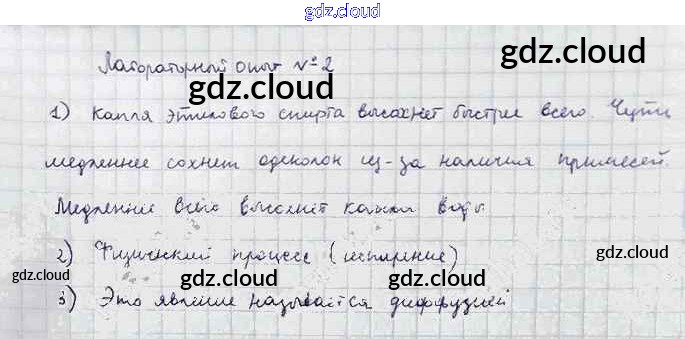 gdz.cloud
gdz.cloud
Лабораторный опыт №2
gdz.cloud
1) Капля этилового спирта высохнет быстрее всего. Чуть
медленнее сохнет одеколон из-за наличия примесей.
gdz.cloud
Медленнее всех высохнет капля воды
2) Физический процесс (испарение)
gdz.cloud
gdz.cloud gdz.cloud gdz.cloud
3) Это явление называется диффузией
gdz.cloud